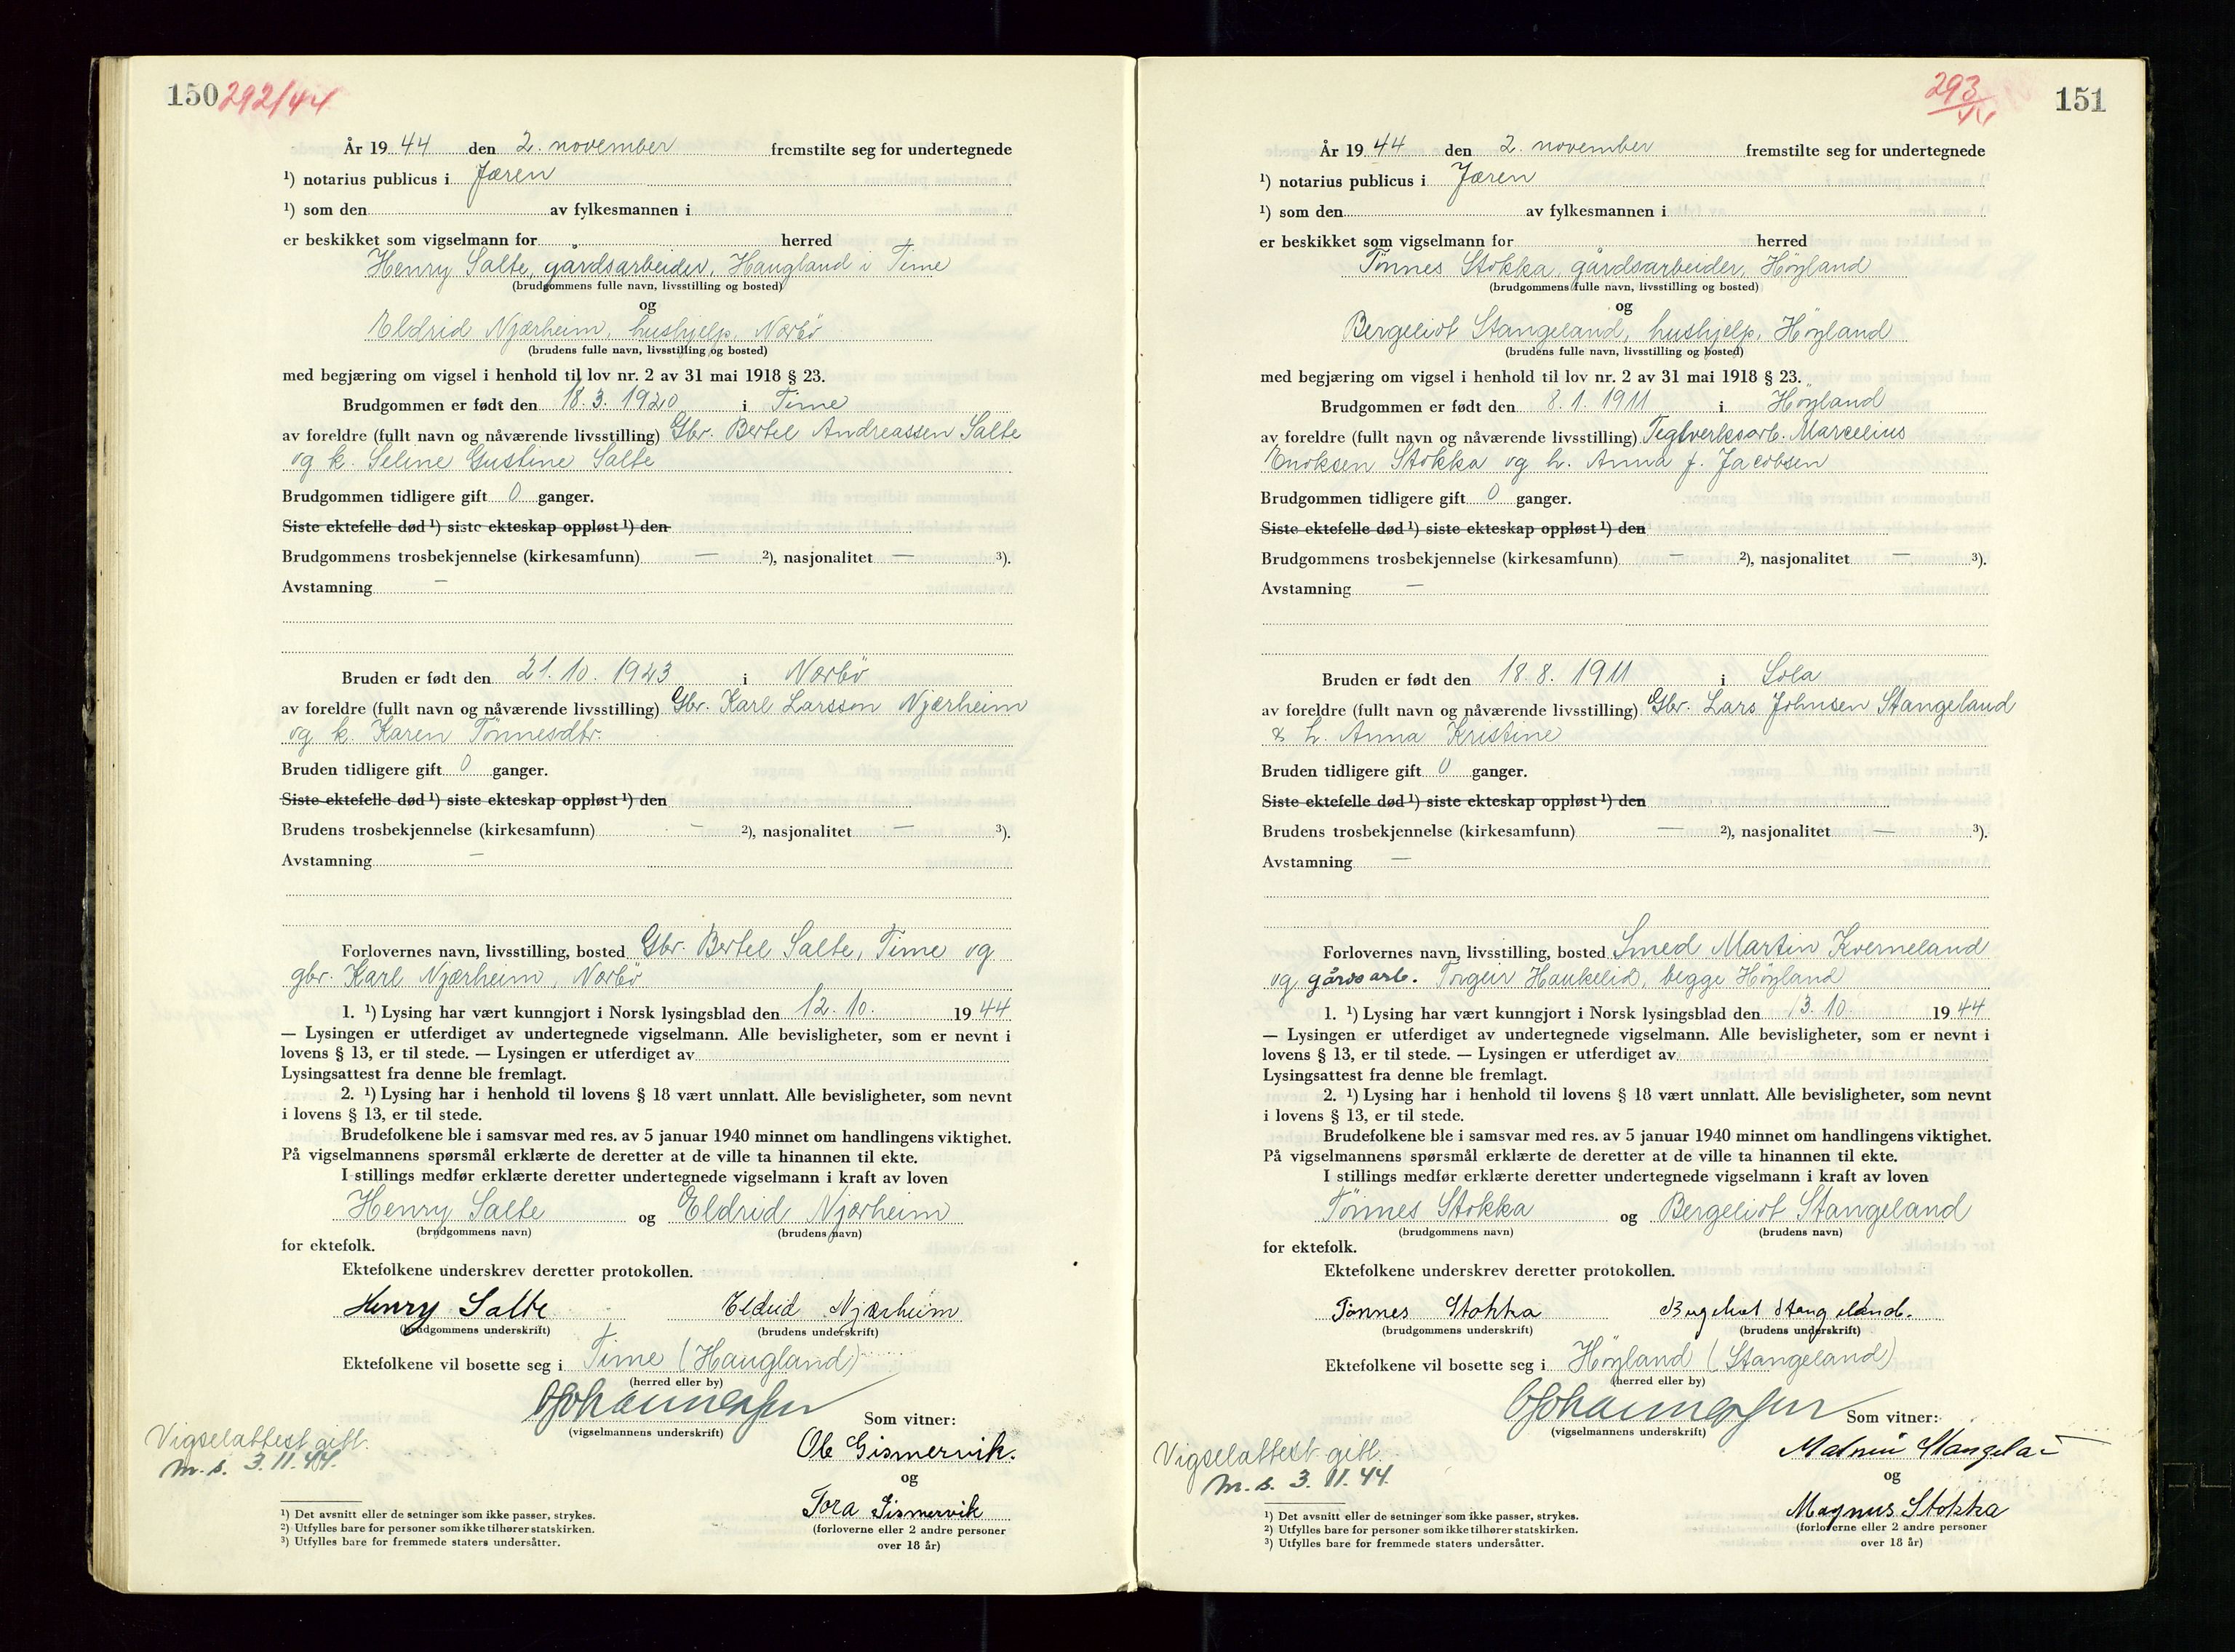 150 292/44
År 19 44 den 2. november fremstilte seg for undertegnede
¹) notarius publicus i Jæren
¹) som den av fylkesmannen i
er beskikket som vigselmann for herred
Henry Salte, gårdsarbeider, Haugland i Time
(brudgommens fulle navn, livsstilling og bosted)
og
Eldrid Njærheim, hushjelp, Nærbö
(brudens fulle navn, livsstilling og bosted)
med begjæring om vigsel i henhold til lov nr. 2 av 31 mai 1918 § 23.
Brudgommen er født den 18. 3. 1920 i Time
av foreldre (fullt navn og nåværende livsstilling) Gbr. Bertel Andreassen Salte
og k. Seline Gustine Salte
Brudgommen tidligere gift 0 ganger.
Siste ektefelle død ¹) siste ekteskap oppløst ¹) den
Brudgommens trosbekjennelse (kirkesamfunn) — ²), nasjonalitet — ³).
Avstamning —
Bruden er født den 21. 10. 1923 i Nærbö
av foreldre (fullt navn og nåværende livsstilling) Gbr. Karl Larsson Njærheim
og k. Karen Tönnesdtr.
Bruden tidligere gift 0 ganger.
Siste ektefelle død ¹) siste ekteskap oppløst ¹) den
Brudens trosbekjennelse (kirkesamfunn) — ²), nasjonalitet — ³).
Avstamning —
Forlovernes navn, livsstilling, bosted Gbr. Bertel Salte, Time og
gbr. Karl Njærheim, Nærbö
1. ¹) Lysing har vært kunngjort i Norsk lysingsblad den 12. 10. 19 44
— Lysingen er utferdiget av undertegnede vigselmann. Alle bevisligheter, som er nevnt i
lovens § 13, er til stede. — Lysingen er utferdiget av
Lysingsattest fra denne ble fremlagt.
2. ¹) Lysing har i henhold til lovens § 18 vært unnlatt. Alle bevisligheter, som nevnt
i lovens § 13, er til stede.
Brudefolkene ble i samsvar med res. av 5 januar 1940 minnet om handlingens viktighet.
På vigselmannens spørsmål erklærte de deretter at de ville ta hinannen til ekte.
I stillings medfør erklærte deretter undertegnede vigselmann i kraft av loven
Henry Salte og Eldrid Njærheim
(brudgommens navn) (brudens navn)
for ektefolk.
Ektefolkene underskrev deretter protokollen.
Henry Salte Eldrid Njærheim
(brudgommens underskrift) (brudens underskrift)
Ektefolkene vil bosette seg i Time (Haugland)
(herred eller by)
(vigselmannens underskrift)
Som vitner:
Vigselattest gitt.
m. s. 3. 11. 44.
Ole Gismervik.
og
Tora Gismervik
(forloverne eller 2 andre personer
over 18 år)
¹) Det avsnitt eller de setninger som ikke passer, strykes.
²) Utfylles bare for personer som ikke tilhører statskirken.
³) Utfylles bare for fremmede staters undersåtter.
293/44 151
År 19 44 den 2. november fremstilte seg for undertegnede
¹) notarius publicus i Jæren
¹) som den av fylkesmannen i
er beskikket som vigselmann for herred
Tönnes Stokka, gårdsarbeider, Höyland
(brudgommens fulle navn, livsstilling og bosted)
og
Bergeliot Stangeland, hushjelp, Höyland
(brudens fulle navn, livsstilling og bosted)
med begjæring om vigsel i henhold til lov nr. 2 av 31 mai 1918 § 23.
Brudgommen er født den 8. 1. 1911 i Höyland
av foreldre (fullt navn og nåværende livsstilling) Teglverksarb. Marcelius
Enoksen Stokka og h. Anna f. Jacobsen
Brudgommen tidligere gift 0 ganger.
Siste ektefelle død ¹) siste ekteskap oppløst ¹) den
Brudgommens trosbekjennelse (kirkesamfunn) — ²), nasjonalitet — ³).
Avstamning —
Bruden er født den 18. 8. 1911 i Sola
av foreldre (fullt navn og nåværende livsstilling) Gbr. Lars Johnsen Stangeland
& h. Anna Kristine
Bruden tidligere gift 0 ganger.
Siste ektefelle død ¹) siste ekteskap oppløst ¹) den
Brudens trosbekjennelse (kirkesamfunn) — ²), nasjonalitet — ³).
Avstamning —
Forlovernes navn, livsstilling, bosted Smed Martin Kverneland
og gårdsarb. Torgeir Haukelid, begge Höyland
1. ¹) Lysing har vært kunngjort i Norsk lysingsblad den 13. 10. 19 44
— Lysingen er utferdiget av undertegnede vigselmann. Alle bevisligheter, som er nevnt i
lovens § 13, er til stede. — Lysingen er utferdiget av
Lysingsattest fra denne ble fremlagt.
2. ¹) Lysing har i henhold til lovens § 18 vært unnlatt. Alle bevisligheter, som nevnt
i lovens § 13, er til stede.
Brudefolkene ble i samsvar med res. av 5 januar 1940 minnet om handlingens viktighet.
På vigselmannens spørsmål erklærte de deretter at de ville ta hinannen til ekte.
I stillings medfør erklærte deretter undertegnede vigselmann i kraft av loven
Tönnes Stokka og Bergeliot Stangeland
(brudgommens navn) (brudens navn)
for ektefolk.
Ektefolkene underskrev deretter protokollen.
Tönnes Stokka Bergeliot Stangeland.
(brudgommens underskrift) (brudens underskrift)
Ektefolkene vil bosette seg i Höyland (Stangeland)
(herred eller by)
(vigselmannens underskrift)
Som vitner:
Vigselattest gitt.
m. s. 3. 11. 44.
Stangeland
og
Magnus Stokka
(forloverne eller 2 andre personer
over 18 år)
¹) Det avsnitt eller de setninger som ikke passer, strykes.
²) Utfylles bare for personer som ikke tilhører statskirken.
³) Utfylles bare for fremmede staters undersåtter.